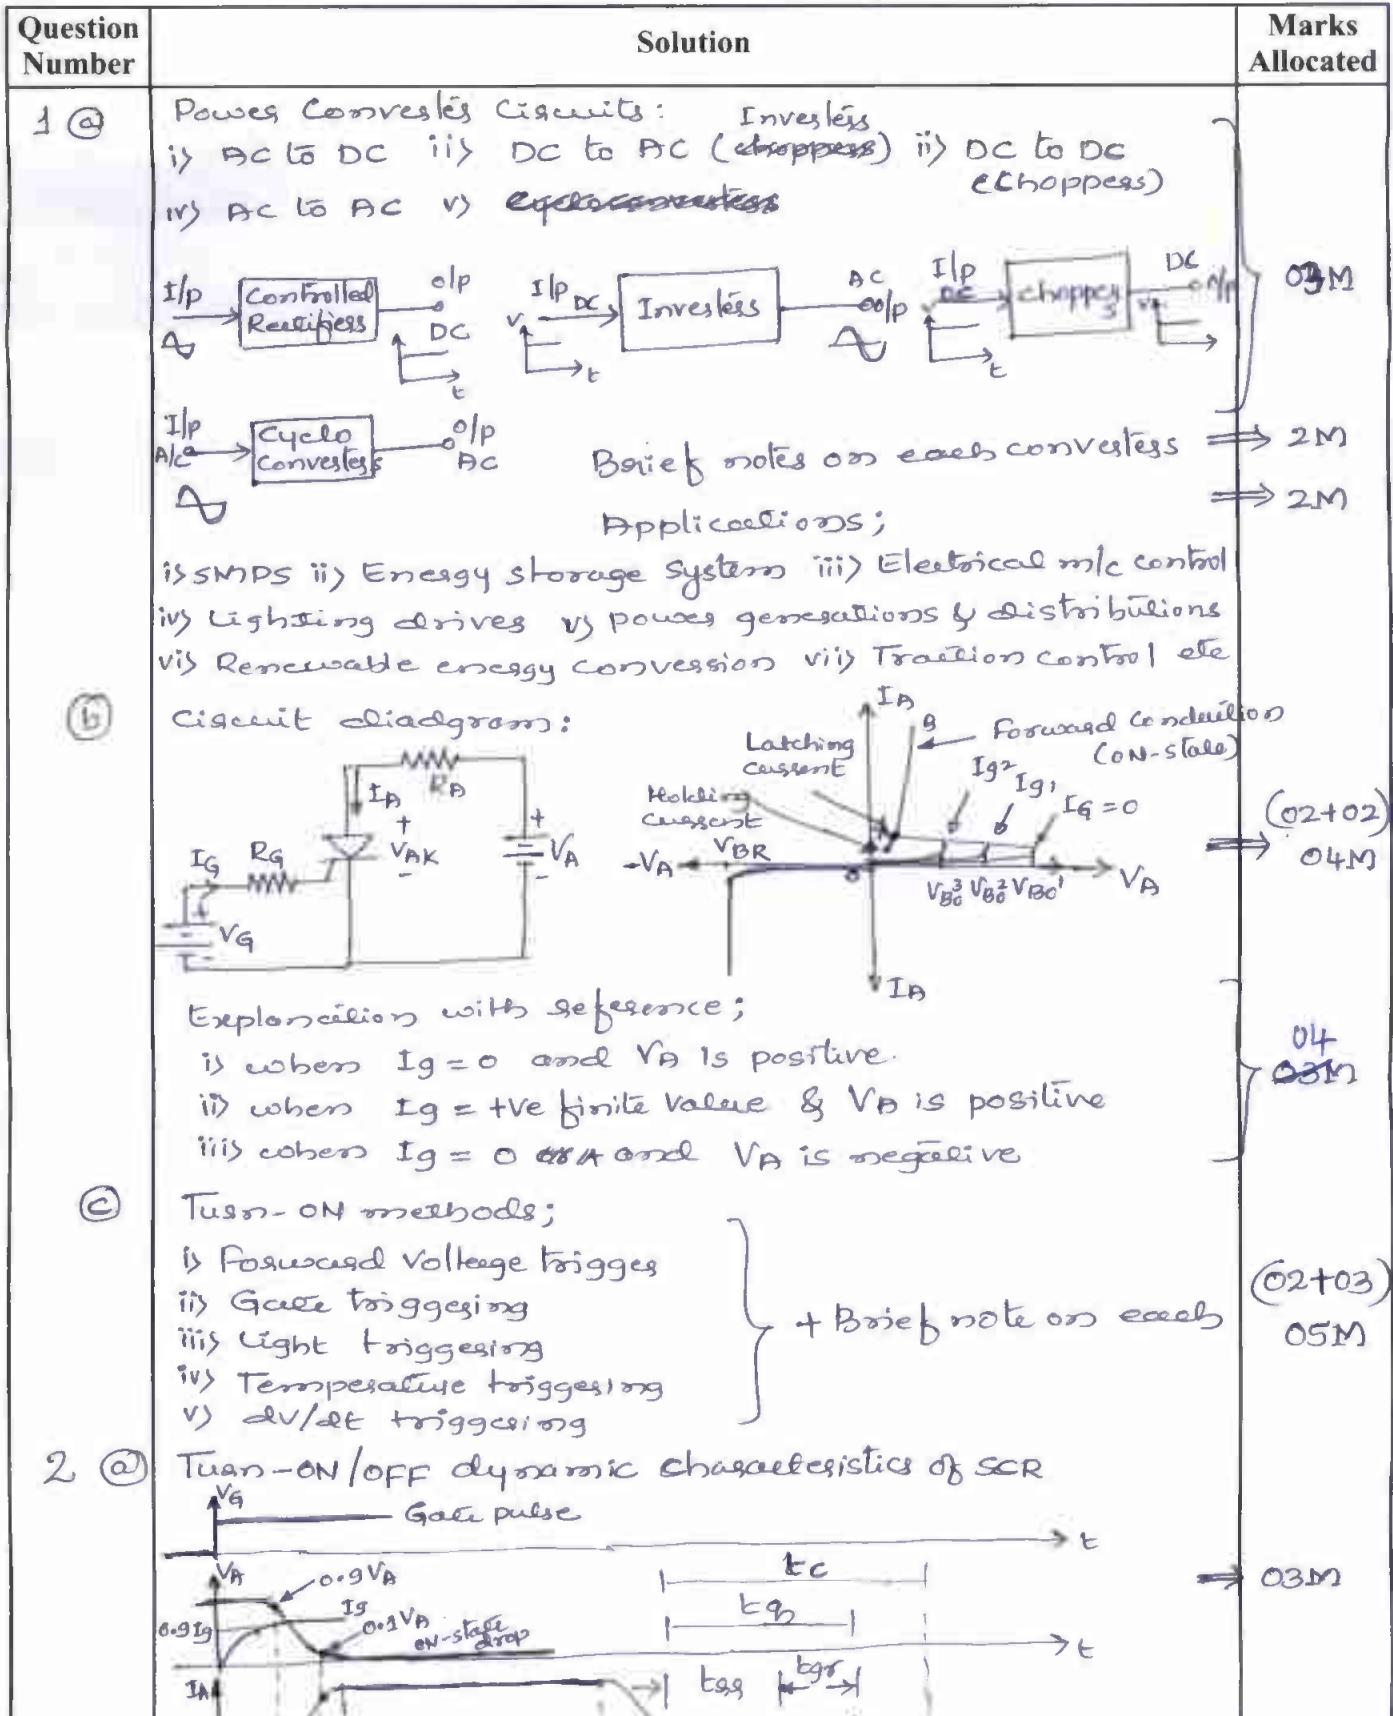 Question Number
Solution
Marks Allocated
1 (a)
Power Converters Circuits:
Inverters
i) AC to DC ii) DC to AC (choppers) ii) DC to DC
(Choppers)
iv) AC to AC v) cycloconverters
03M
I/p
Controlled
Rectifiers
o/p
DC
t
I/p DC
V
t
Inverters
AC
o/p
I/p
DC
t
chopper
s
DC
o/p
I/p
A/c
Cyclo
Converters
o/p
AC
Brief notes on each converters ⇒ 2M
⇒ 2M
Applications;
i) SMPS ii) Energy storage system iii) Electrical m/c control
iv) Lighting drives v) power generations & distributions
vi) Renewable energy conversion vii) Traction control etc
(b)
Circuit diadgram:
RA
IA
+
VAK
-
+
VA
-
IG
RG
+
VG
-
IA
B
Forward Conduction
(ON-state)
Latching
current
Holding
current
Ig2
Ig1
IG = 0
-VA
VBR
0
VBO3 VBO2 VBO1
VA
IA
(02+02)
04M
Explanation with reference;
i) when Ig = 0 and VA is positive.
ii) when Ig = +ve finite value & VA is positive
iii) when Ig = 0 and VA is negative
04
03M
(c)
Turn-ON methods;
i) Forward Voltage trigger
ii) Gate triggering
iii) Light triggering
iv) Temperature triggering
v) dv/dt triggering
+ Brief note on each
(02+03)
05M
2 (a)
Turn-ON/OFF dynamic characteristics of SCR
VG
Gate pulse
t
VA
0.9VA
Ig
0.9Ig
0.1VA
ON-state
drop
tc
tq
t
⇒ 03M
IA
trr
tgr